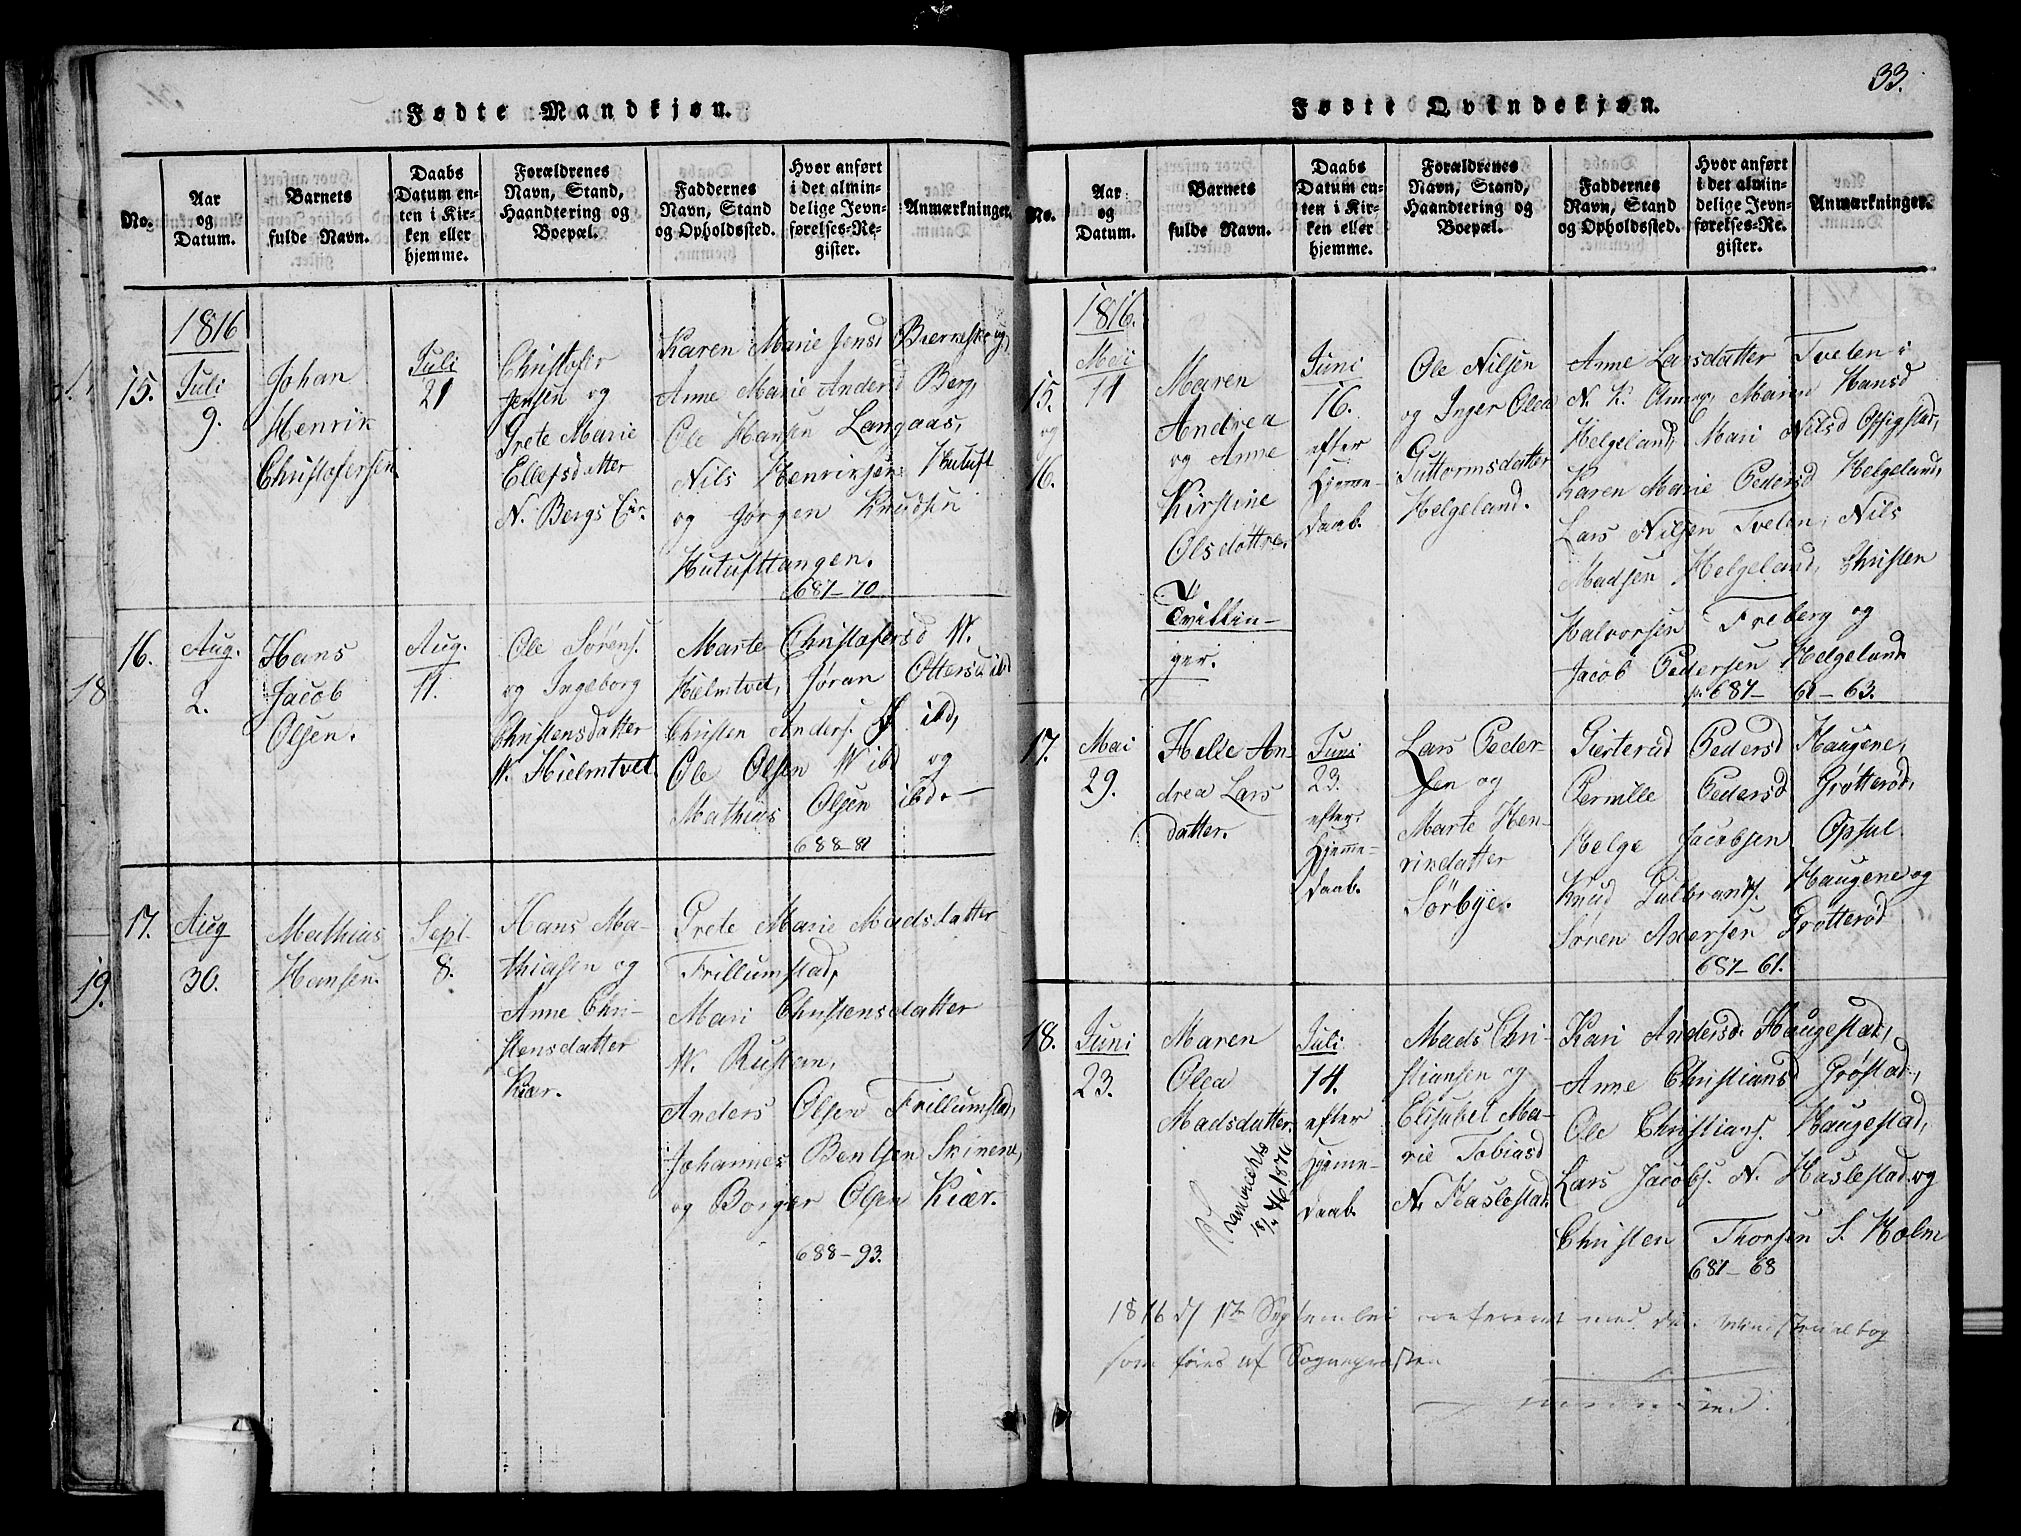 Fødte Mandkjøn.
No.
Aar
og
Datum.
Barnets
fulde Navn.
Daabs
Datum en-
ten i Kir-
ken eller
hjemme.
Forældrenes
Navn, Stand,
Haandtering og
Boepæl.
Faddernes
Navn, Stand
og Opholdssted.
Hvor anført
i det almin-
delige Jevn-
førelses-Re-
gister.
Anmærkninger.
15.
1816
Juli
9.
Johan
Henrik
Christofersen
Juli
21
Christofer
Jensen og
Grete Marie
Ellefsdatter
N. Bergs Eir.
Karen Marie Jensd Bierkeskog,
Anne Marie Andersd Berg,
Ole Hansen Langaas,
Nils Henriksen Hutuft
og Jørgen Knudsen
Hutufttangen.
687-70
16.
Aug.
2.
Hans
Jacob
Olsen.
Aug.
11.
Ole Sørens.
og Ingeborg
Christensdatter
W. Hielmtvet
Marte Christofersd W.
Hielmtvet, Jøran Ottersd ibd
Christen Anders. Ø ibd,
Ole Olsen W ibd og
Mathias Olsen ibd. —
688-81
17.
Aug
30.
Mathias
Hansen.
Sept.
8.
Hans Ma-
thiasen og
Anne Chri-
stensdatter
Kiær.
Grete Marie Madsdatter
Frillumstad,
Mari Christensdatter
W. Rustan,
Anders Olsen Frillumstad,
Johannes Bentsen Skinene,
og Borger Olsen Kiær.
688-93.
18
19.
33.
Fødte Qvindekjøn.
No.
Aar
og
Datum.
Barnets
fulde Navn.
Daabs
Datum en-
ten i Kir-
ken eller
hjemme.
Forældrenes
Navn, Stand,
Haandtering og
Boepæl.
Faddernes
Navn, Stand
og Opholdssted.
Hvor anført
i det almin-
delige Jevn-
førelses-Re-
gister.
Anmærkninger.
15.
og
16.
1816.
Mai
11
Maren
Andrea
og Anne
Kirstine
Olsdøttre.
Tvillin-
ger.
Juni
16.
efter
Hjemme-
daab.
Ole Nilsen
og Inger Olea
Guttormsdatter
Helgeland.
Anne Larsdatter Tveten i
N. K. Maren Hansd
Helgeland, Mari Nilsd
Karen Marie Pedersd Helgeland,
Lars Nilsen Tveten, Nils
Madsen Helgeland, Christen
Halvorsen Freberg og
Jacob Pedersen Helgeland
p. 687- 62-63.
17.
Mai
29.
Helle An-
drea Lars
datter.
Juni
23.
efter
Hjemme-
daab.
Lars Peder-
sen og
Marte Hen-
rikdatter
Sørbye.
Gierterud Pedersd Haugene,
Pernille Pedersd Grøtterød,
Helge Jacobsen Opsul
Knud Gulbrands. Haugene og
Søren Andersen Grøtterød
687-61.
18.
Juni
23.
Maren
Olea
Madsdatter.
18/11 1876
Juli
14.
efter
Hjemme-
daab.
Mads Chri-
stiansen og
Elisabet Ma-
rie Tobiasd
N. Haslestad
Kari Andersd. Haugestad,
Anne Christiansd Grøstad,
Ole Christians. Haugestad,
Lars Jacobs. N. Haslestad og
Christen Thorsen S. Holm
687-68
1816 d/ 1te September confereret med den Ministerialbog
som føres af Sognepræsten